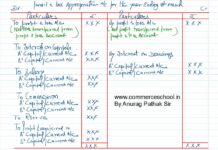 Profit & Loss Appropriation A/c for the year Ending of march
Dr. Cr.
Particulars ₹ Particulars ₹
To Profit & Loss A/c XXX By Profit & Loss A/c XXX
(Net loss transferred from Profit & Loss Account) (Net profit transferred from Profit & Loss Account)
To Interest on Capital: By Interest on Drawings
A's Capital/Current A/c XXX A's Capital/Current A/c XXX
B's Capital/Current A/c XXX B's Capital/Current A/c XXX
To Salary
A's Capital/Current A/c XXX
B's Capital/Current A/c XXX
www.commerceschool.in
By:Anurag Pathak Sir
To Commission
A's Capital/Current A/c XXX
B's Capital/Current A/c XXX
To Reserve XXX
To Profit
A's Capital/Current A/c XXX
B's Capital/Current A/c XXX
XXX XXX